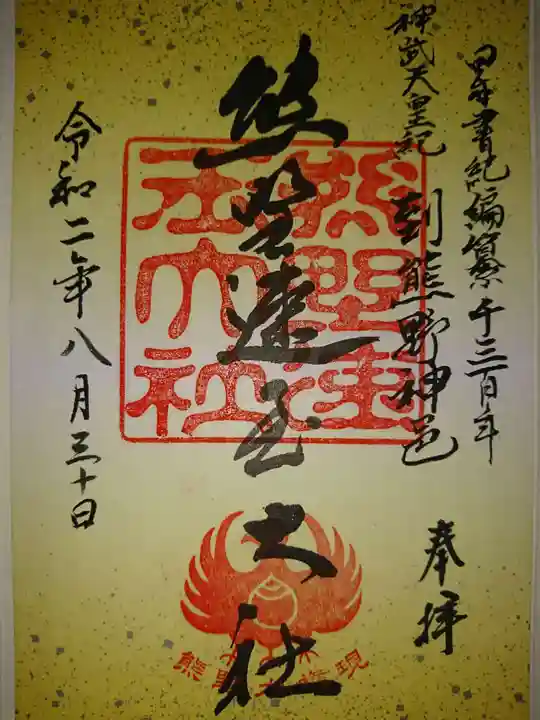 日本書紀編纂千三百年
神武天皇記
到熊野神邑
奉拝
熊野速玉大社
熊野速玉大社
令和二年八月三十日